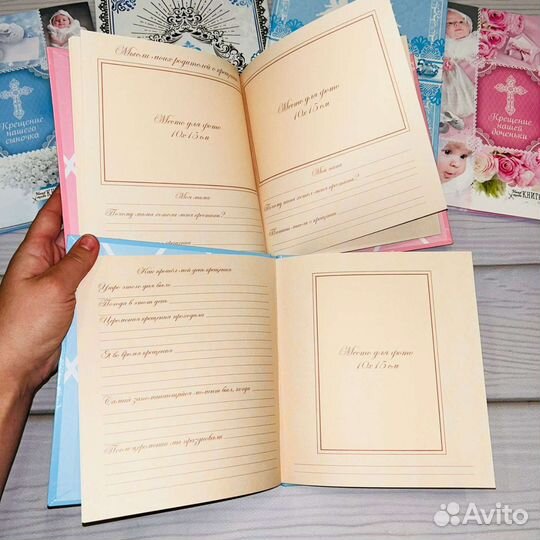 Крещение
нашего
сыночка
Крещение
нашей
доченьки
КНИГ
Мысли моих родителей о крещении
Место для фото
10х15 см
Место для фото
10х15 см
Моя мама
Почему мама хотела меня крестить?
Мой папа
Почему папа хотел меня крестить?
Папины мысли о крещении
Как прошёл мой день крещения
Утро этого дня было
Погода в этот день
Церемония крещения проходила
Я во время крещения
Самый запоминающийся момент был, когда
После церемонии мы праздновали
Место для фото
10х15 см
Avito